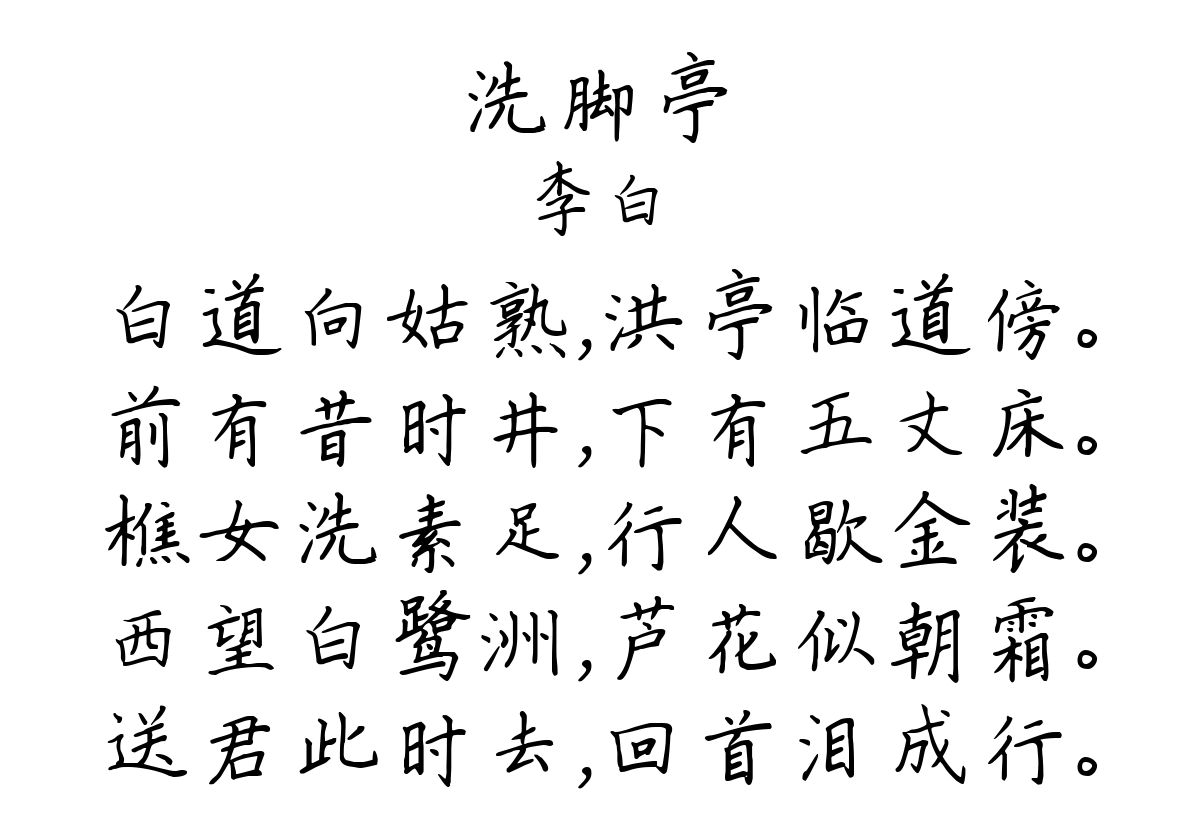 洗脚亭
李白
白道向姑熟,洪亭临道傍。
前有昔时井,下有五丈床。
樵女洗素足,行人歇金装。
西望白鹭洲,芦花似朝霜。
送君此时去,回首泪成行。